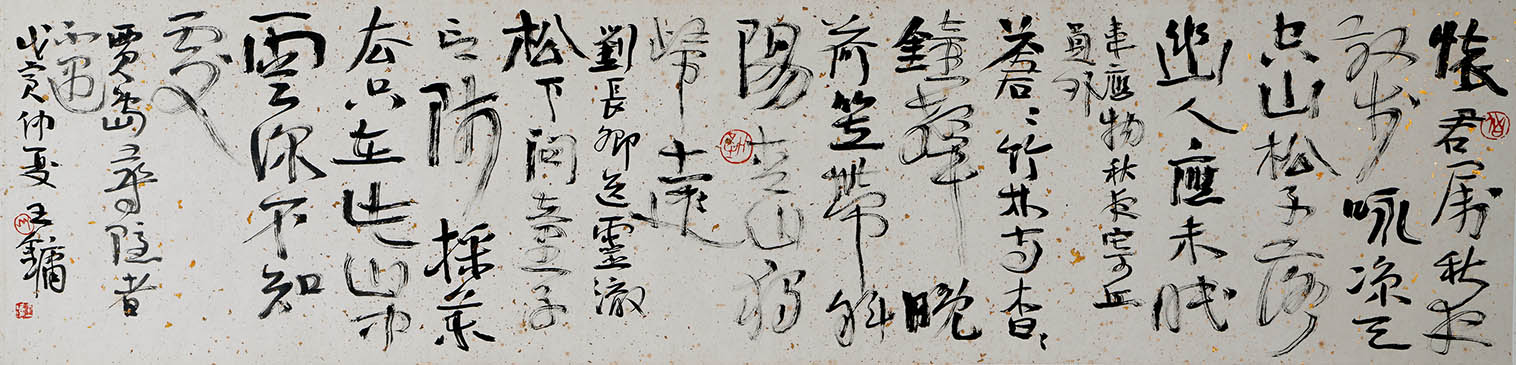 懷君屬秋夜
散步咏涼天
空山松子落
幽人應未眠
韋應物秋夜寄丘
員外
蒼〻竹林寺杳〻
鐘聲晚
荷笠帶斜
陽青山獨
歸遠
劉長卿送靈澈
松下問童子
言師採藥
去只在此山中
雲深不知
處
賈島尋隱者
不遇
戊寅仲夏 王鏞